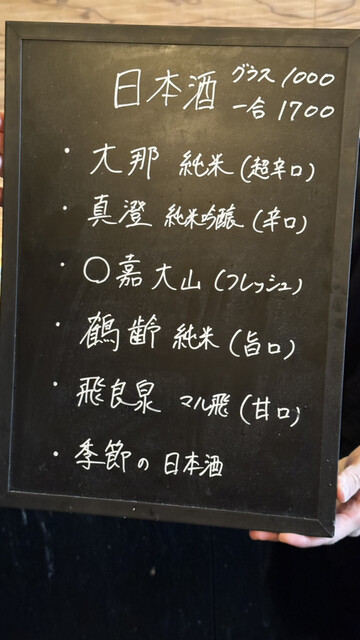 日本酒 グラス 1000
一合 1700
・大那 純米(超辛口)
・真澄 純米吟醸(辛口)
・〇嘉大山(フレッシュ)
・鶴齢 純米(旨口)
・飛良泉 マル飛(甘口)
・季節の日本酒